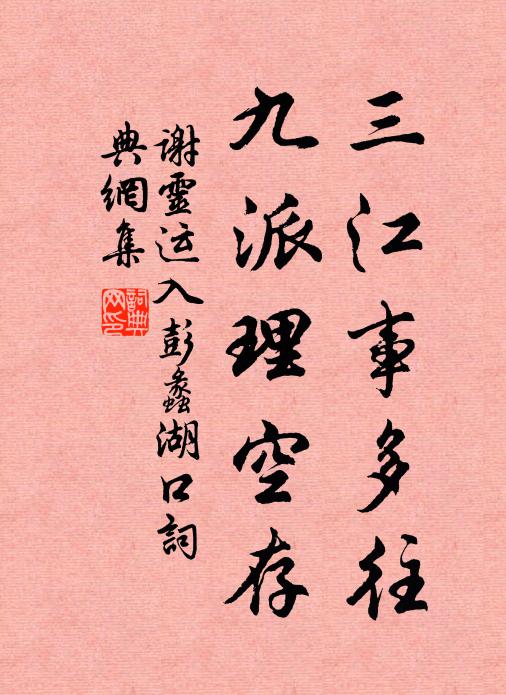 三江事多往
九派理空存
谢靈运入彭蠡湖口詞
典網集
詞典网印